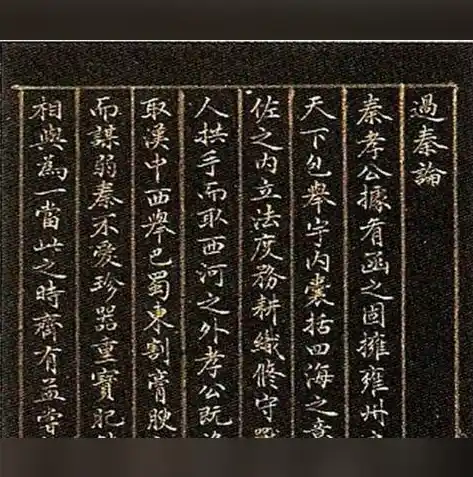 過秦論
秦孝公據肴函之固擁雍州
天下包舉宇内囊括四海之意
佐之内立法度務耕織修守戰
人拱手而取西河之外孝公既
取漢中西舉巴蜀東割膏腴
而謀弱秦不愛珍器重寶肥
相與為一當此之時齊有孟嘗